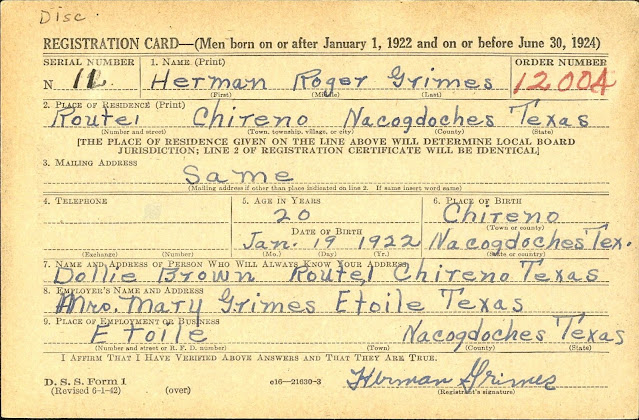 Disc.
REGISTRATION CARD—(Men born on or after January 1, 1922 and on or before June 30, 1924)
SERIAL NUMBER 1. NAME (Print) ORDER NUMBER
N 11 Herman Roger Grimes 12004
(First) (Middle) (Last)
2. PLACE OF RESIDENCE (Print)
Route1 Chireno Nacogdoches Texas
(Number and street) (Town, township, village, or city) (County) (State)
[THE PLACE OF RESIDENCE GIVEN ON THE LINE ABOVE WILL DETERMINE LOCAL BOARD
JURISDICTION; LINE 2 OF REGISTRATION CERTIFICATE WILL BE IDENTICAL]
3. MAILING ADDRESS
Same
(Mailing address if other than place indicated on line 2. If same insert word same)
4. TELEPHONE 5. AGE IN YEARS 6. PLACE OF BIRTH
20 Chireno
DATE OF BIRTH (Town or county)
Jan. 19 1922 Nacogdoches Tex.
(Exchange) (Number) (Mo.) (Day) (Yr.) (State or country)
7. NAME AND ADDRESS OF PERSON WHO WILL ALWAYS KNOW YOUR ADDRESS
Dollie Brown Route1 Chireno Texas
8. EMPLOYER'S NAME AND ADDRESS
Mrs. Mary Grimes Etoile Texas
9. PLACE OF EMPLOYMENT OR BUSINESS
Etoile Nacogdoches Texas
(Number and street or R. F. D. number) (Town) (County) (State)
I AFFIRM THAT I HAVE VERIFIED ABOVE ANSWERS AND THAT THEY ARE TRUE.
D. S. S. Form 1
(Revised 6-1-42) (over) e16—21630-3 Herman Grimes
(Registrant's signature)